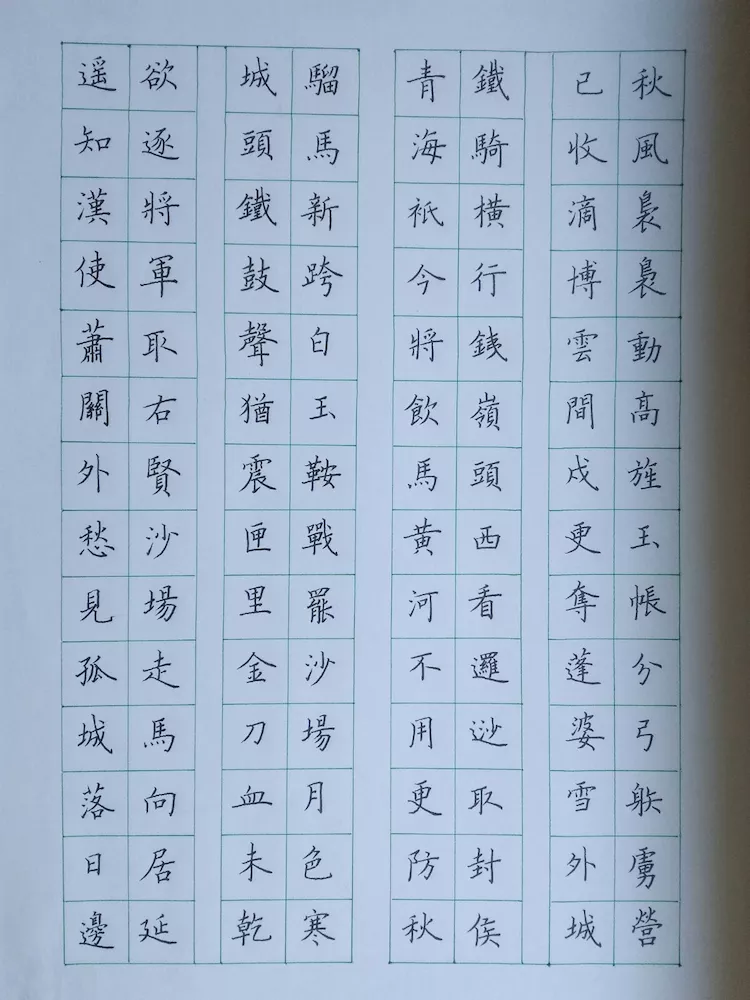 秋風裊裊動髙旌玉帳分弓䠶虜營
已收滴博雲間戍更奪蓬婆雪外城
鐵騎橫行銕嶺頭西看邏逤取封侯
青海衹今將飲馬黃河不用更防秋
騮馬新跨白玉鞍戰罷沙場月色寒
城頭鐵鼓聲猶震匣里金刀血未乾
欲逐將軍取右賢沙場走馬向居延
遥知漢使蕭關外愁見孤城落日邊